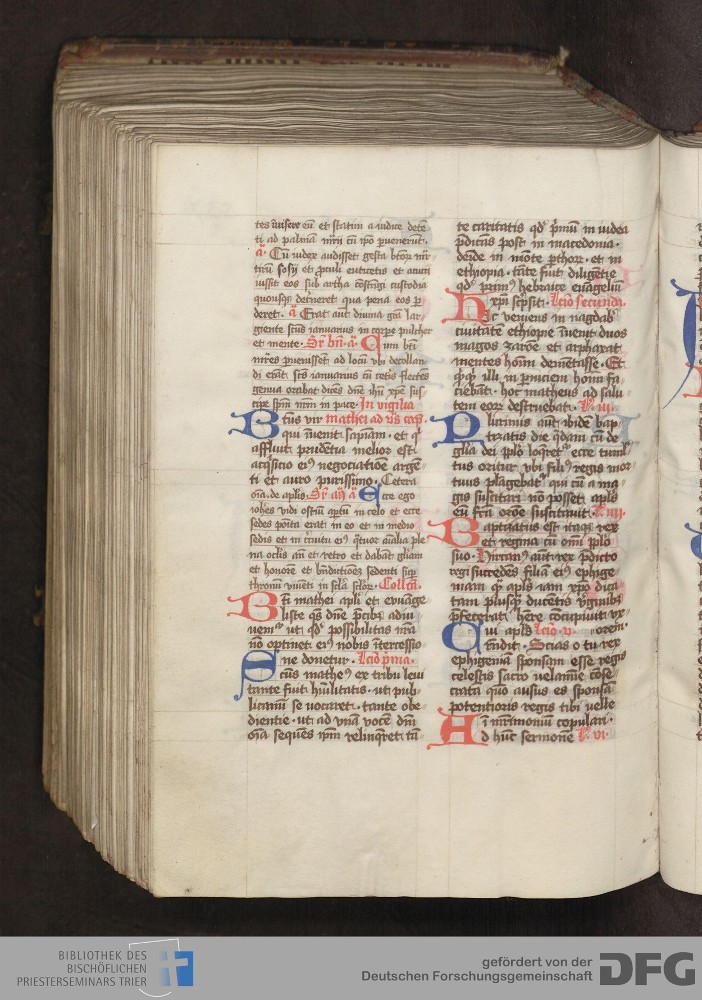 tes iussere eū et statim a iudice dete
ti ad palmā mr̄ij cū ipō ꝑuenerūt.
a. Cū iudex audisset gesta btoꝝ mr̄
tirū sosij et ꝓculi euticetis et acutii
iussit eos sub artha cōstrīgi custodia
quousqꝫ dec̄neret qua pena eos ꝑ
deret. a Erat aut̄ diuina grā lar
giente sctūs ianuarius in corꝑe pulcher
et mente. Sr̄ bn̄. a. Cum bt̄i
mr̄es ꝑuenissēt ad locū vbi decollan
di erāt. sctūs ianuarius cū cetis flectēs
genua orabat dicēs dn̄e ih̄u xp̄e sus
cipe spm̄ meū in pace. In vigilia
Btūs vir mathei ad vs̄ cap.
qui īuenit sapiam. et qͥ
affluit prudētia melior est
acq̄sicio eiꝰ negociatiōe argē
ti et auro purissimo. Cetera
oīa de aplis. Sr̄ añ a Ecce ego
iohēs vidi ostiū aꝑtū in celo et ecce
sedes posita erat in eo et in medio
sedis et in circuitu eiꝰ qͣtuor aīalia ple
na oclis añ et retro et dabāt gliam
et honorē et bn̄dictiōeȝ sedenti suꝑ
thronū viuēti in scla sclorꝝ. Collcā.
Bt̄i mathei apli et euāge
liste qs̄ dn̄e p̄cibꝫ adiu
uemꝰ ut qd̓ possibilitas nr̄a
nō optinet eiꝰ nobis īt̄cessio
ne donetur. Lcio p̄ma.
Sctūs matheꝰ ex tribu leui
tante fuit hūilitatis. ut pub
licanū se vocaret. tante obe
dientie. ut ad vnā vocē dn̄i
oīa sequēs ipm̄ relinq̄ret. tā
te caritatis qd̓ pͥmū in iudea
p̄dicās post in macedonia.
deīde in mōte parthoꝝ. et in
ethiopia. tāte fuit diligētie
qd̓ pͥmꝰ hebraice euāgeliū
xp̄i scpͥsit. Lcio secunda.
Hic veniens in nagdab
ciuitatē ethiopie īuenit duos
magos zaroē et arphaxat
mentes hom̄ dementasse. Et
qͥqͥd illi in ꝑniciem hom̄ fa
ciebāt. hoc matheus ad salu
tem eoꝝ destruebat. L. iii.
Plurimis aut̄ ibidē bap
tizatis die q̄dam cū de
gl̄ia dei pplo loq̄ret̄ ecce tumul
tus oritur vbi filiꝰ regis mor
tuus plāgebat̄ qui cū a ma
gis suscitari nō posset. aplus
eū sua orōe suscitauit. L. iiii.
Baptizatus est itaqꝫ rex
et regina cū om̄i pplo
suo. Hirtacꝰ aut̄ rex p̄dicto
regi succedēs filiā eiꝰ ephige
niam qͣ aplus iam xp̄o dica
tam plusqͣ ducentis v̓ginibꝫ
p̄fecerat. h̄ere cōcupiuit vx
Cui aplus Lcio v. orem.
rn̄dit. Scias o tu rex
ephigeniā sponsam esse regis
celestis sacro velamīe cōse
cratā quō ausus es sponsā
potentioris regis tibi velle
in mr̄imoniū copulari.
Ad hūc sermonē L. vi.
BIBLIOTHEK DES
BISCHÖFLICHEN
PRIESTERSEMINARS TRIER
gefördert von der
Deutschen Forschungsgemeinschaft
DFG